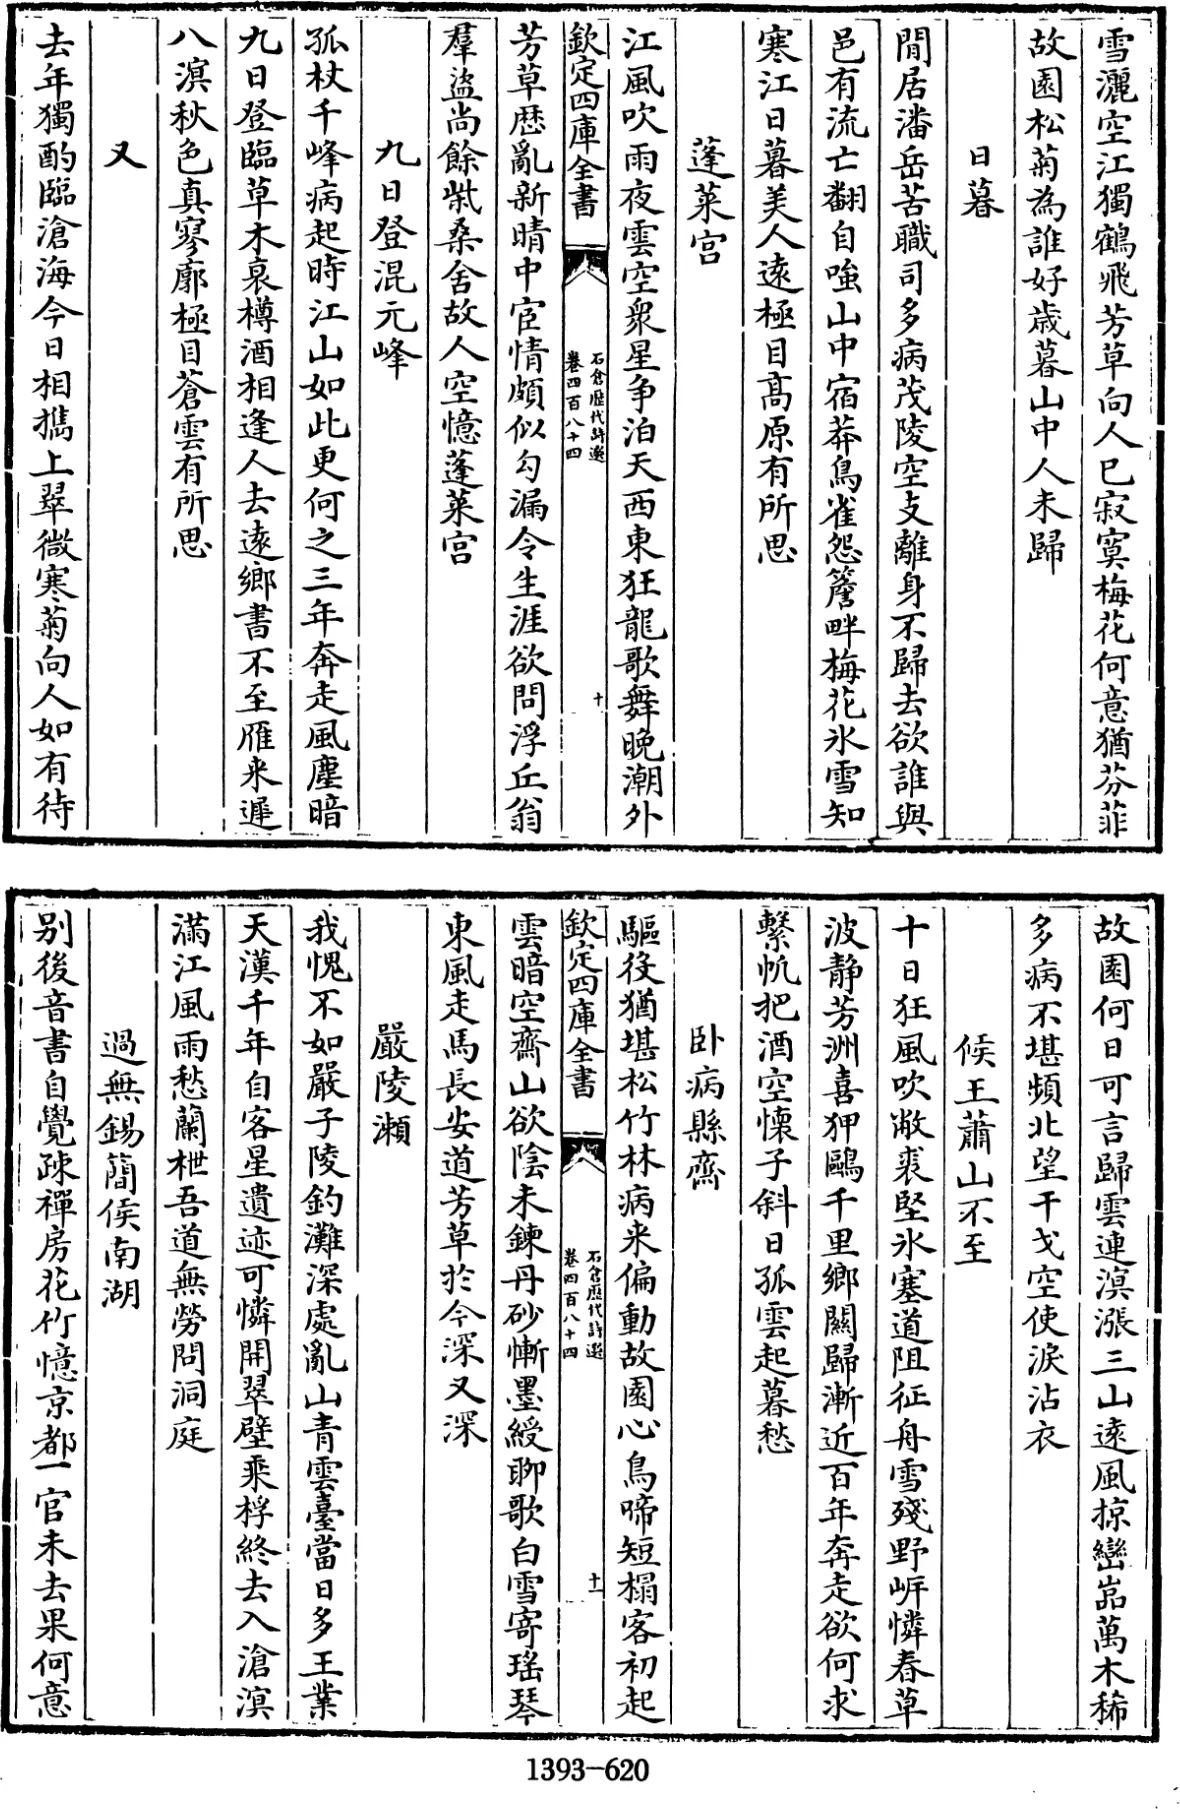 雪灑空江獨鶴飛芳草向人已寂寞梅花何意猶芬菲
故園松菊為誰好歲暮山中人未歸
日暮
閒居潘岳苦職司多病茂陵空支離身不歸去欲誰與
邑有流亡翻自嗤山中宿莽鳥雀怨簷畔梅花氷雪知
寒江日暮美人遠極目髙原有所思
蓬萊宮
江風吹雨夜雲空衆星争泊天西東狂龍歌舞晚潮外
欽定四庫全書
石倉歴代詩選
卷四百八十四
十
芳草歴亂新晴中宦情頗似勾漏令生涯欲問浮丘翁
羣盜尚餘柴桑舍故人空憶蓬萊宮
九日登混元峰
孤杖千峰病起時江山如此更何之三年奔走風塵暗
九日登臨草木哀樽酒相逢人去遠鄉書不至雁来遲
八溟秋色真寥廓極目蒼雲有所思
又
去年獨酌臨滄海今日相攜上翠微寒菊向人如有待
故園何日可言歸雲連溟漲三山遠風掠巒嵓萬木稀
多病不堪頻北望干戈空使淚沾衣
候王蕭山不至
十日狂風吹敝裘堅氷塞道阻征舟雪殘野岍憐春草
波静芳洲喜狎鷗千里鄉關歸漸近百年奔走欲何求
繫帆把酒空懐子斜日孤雲起暮愁
卧病縣齋
驅役猶堪松竹林病来偏動故園心鳥啼短榻客初起
欽定四庫全書
石倉歴代詩選
卷四百八十四
十一
雲暗空齋山欲陰未鍊丹砂慚墨綬聊歌白雪寄瑤琴
東風走馬長安道芳草於今深又深
嚴陵瀬
我愧不如嚴子陵釣灘深處亂山青雲臺當日多王業
天漢千年自客星遺迹可憐開翠壁乘桴終去入滄溟
滿江風雨愁蘭枻吾道無勞問洞庭
過無錫簡侯南湖
别後音書自覺疎禪房花竹憶京都一官未去果何意
1393-620